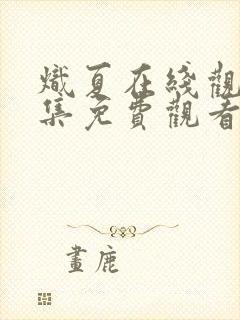 熾夏在綫觀
集免費觀看
畫鹿